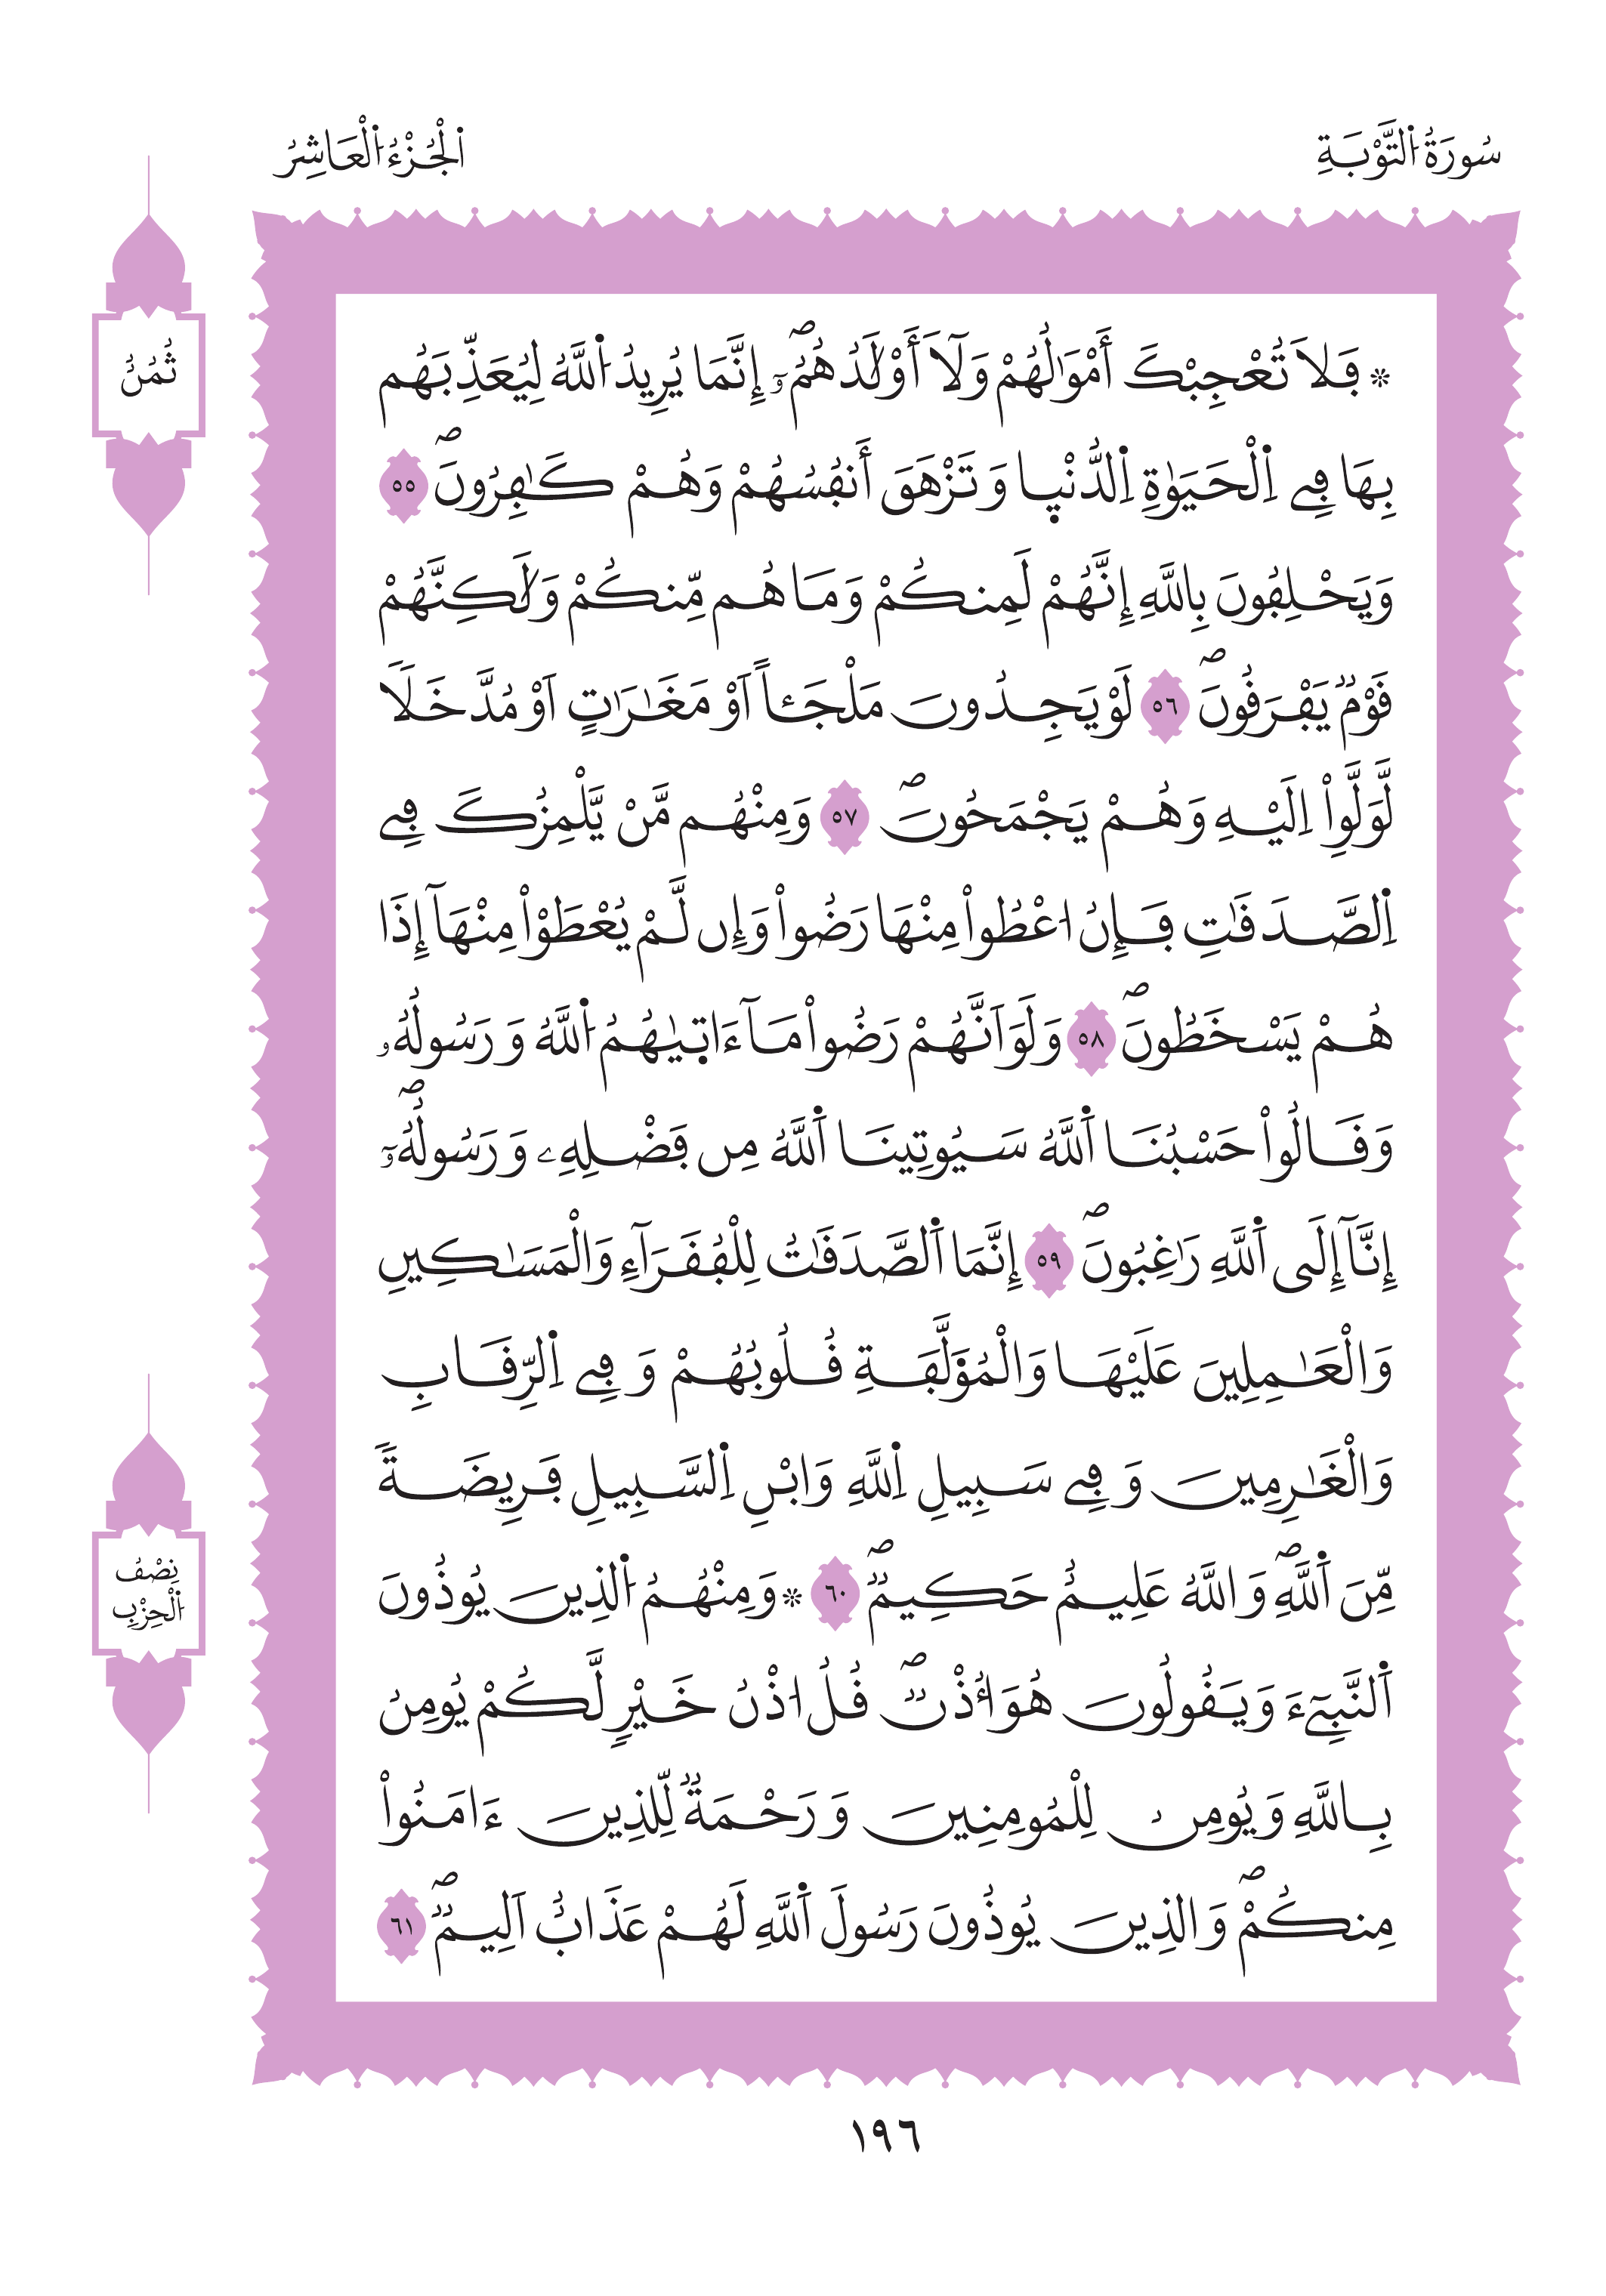 سُورَةُ اُ۬لتَّوْبَةِ
اُ۬لْجُزْءُ اُ۬لْعَاشِرُ
ثُمُنُ
۞ فَلَا تُعْجِبْكَ أَمْوَٰلُهُمْ وَلَآ أَوْلَٰدُهُمُۥٓۖ إِنَّمَا يُرِيدُ اُ۬للَّهُ لِيُعَذِّبَهُم
بِهَا فِے اِ۬لْحَيَوٰةِ اِ۬لدُّنْي۪ا وَتَزْهَقَ أَنفُسُهُمْ وَهُمْ كَٰفِرُونَۖ ٥٥
وَيَحْلِفُونَ بِاللَّهِ إِنَّهُمْ لَمِنكُمْ وَمَا هُم مِّنكُمْ وَلَٰكِنَّهُمْ
قَوْمٌ يَفْرَقُونَۖ ٥٦ لَوْ يَجِدُونَ مَلْجَـٔاً اَوْ مَغَٰرَٰتٍ اَوْ مُدَّخَلاٗ
لَّوَلَّوِاْ اِلَيْهِ وَهُمْ يَجْمَحُونَۖ ٥٧ وَمِنْهُم مَّنْ يَّلْمِزُكَ فِے
اِ۬لصَّدَقَٰتِ فَإِنُ ا۟عْطُواْ مِنْهَا رَضُواْ وَإِن لَّمْ يُعْطَوْاْ مِنْهَآ إِذَا
هُمْ يَسْخَطُونَۖ ٥٨ وَلَوَ اَنَّهُمْ رَضُواْ مَآ ءَات۪يٰهُمُ اُ۬للَّهُ وَرَسُولُهُۥ
وَقَالُواْ حَسْبُنَا اَ۬للَّهُ سَيُوتِينَا اَ۬للَّهُ مِن فَضْلِهِۦ وَرَسُولُهُۥٓۖ
إِنَّآ إِلَى اَ۬للَّهِ رَٰغِبُونَۖ ٥٩ إِنَّمَا اَ۬لصَّدَقَٰتُ لِلْفُقَرَآءِ وَالْمَسَٰكِينِ
وَالْعَٰمِلِينَ عَلَيْهَا وَالْمُؤَلَّفَةِ قُلُوبُهُمْ وَفِے اِ۬لرِّقَابِ
وَالْغَٰرِمِينَ وَفِے سَبِيلِ اِ۬للَّهِ وَابْنِ اِ۬لسَّبِيلِ فَرِيضَةٗ
مِّنَ اَ۬للَّهِۖ وَاللَّهُ عَلِيمٌ حَكِيمٌۖ ٦٠ ۞ وَمِنْهُمُ اُ۬لذِينَ يُوذُونَ
نِصْفُ اُ۬لْحِزْبِ
اَ۬لنَّبِےٓءَ وَيَقُولُونَ هُوَ أُذْنٞۖ قُلُ ا۟ذْنُ خَيْرٖ لَّكُمْ يُومِنُ
بِاللَّهِ وَيُومِنُ لِلْمُومِنِينَ وَرَحْمَةٞ لِّلذِينَ ءَامَنُواْ
مِنكُمْۖ وَالذِينَ يُوذُونَ رَسُولَ اَ۬للَّهِ لَهُمْ عَذَابٌ اَلِيمٞۖ ٦١
١٩٦